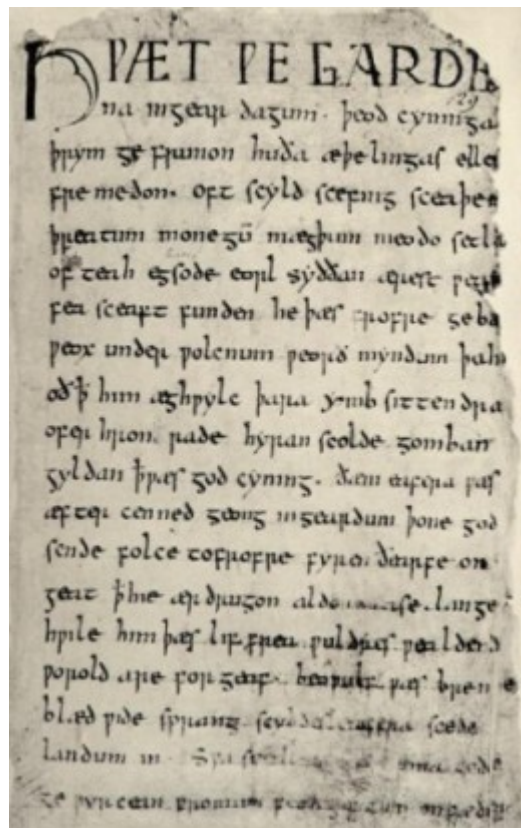 HǷÆT ǷE GARDE
na ingear dagum. þeod cyninga
þrym ge frunon huða æþelingas elle
fremedon. oft scyld scefing sceaþe
þreatum monegū mægþum meodo setla
of teah egsode eorl syððan ærest
fea sceaft funden he þæs frofre geba
ƿeox under ƿolcnum ƿeorð myndum þah
oð ꝥ him æghƿylc þara ymb sittendra
ofer hron rade hyran scolde gomban
gyldan ꝥ ƿæs god cyning. ðæm eafera ƿæs
æfter cenned geong ingeardum þone god
sende folce tofrofre fyren ðearfe on
geat ꝥ hie ær drugon lange
hƿile him þæs lif frea ƿuldres ƿealdend
ƿorold are for geaf. beoƿulf ƿæs breme
blæd ƿide sprang scyldes eafera scede
landum in. Sƿa
ge ƿyrcean fromum feoh giftum